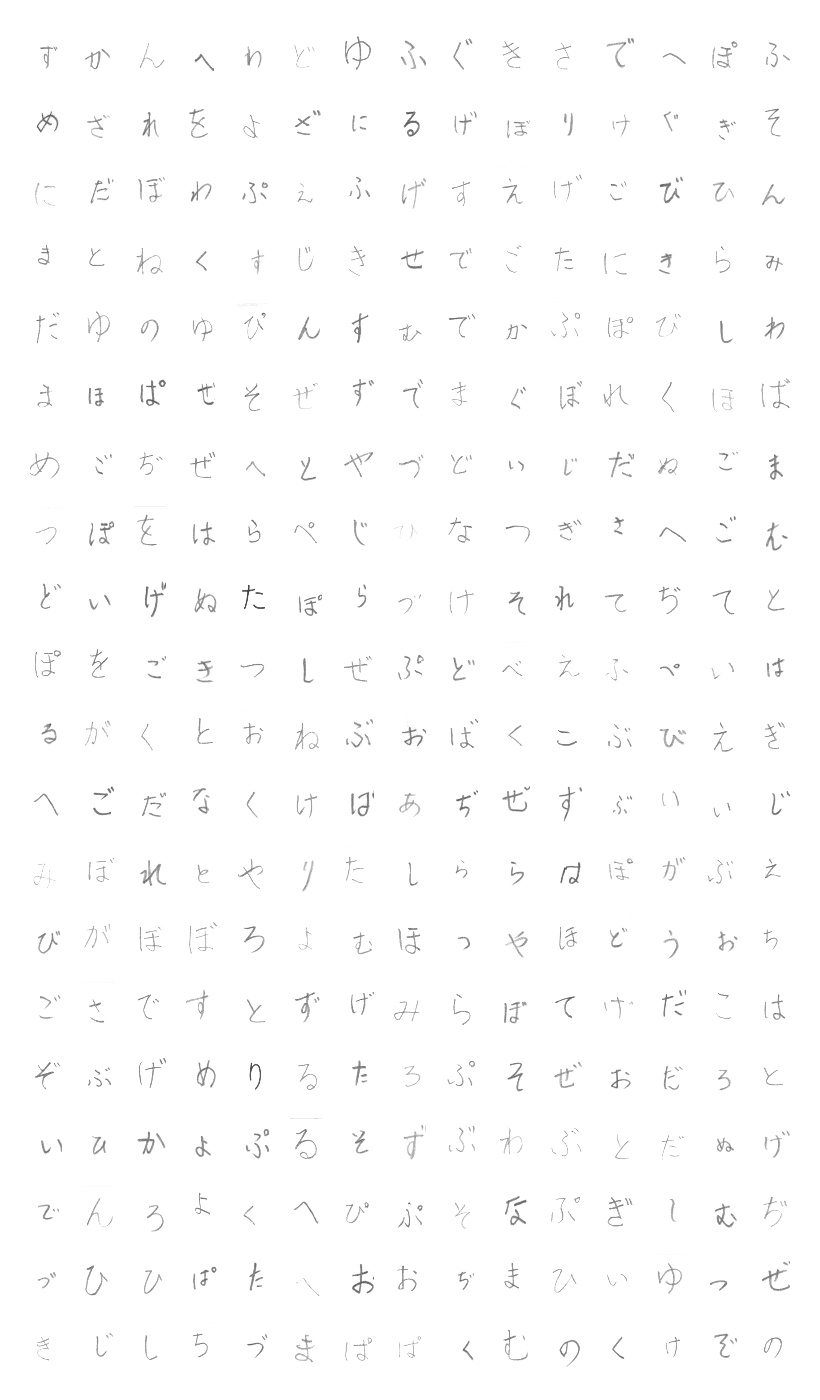 ずかんへわどゆふぐきさでへぽふ
めざれをよざにるげぼりけぐぎそ
にだぼわぷえふげすえげごびひん
まとねくすじきせでごたにきらみ
だゆのゆぴんすむでかぷぽびしわ
まほぱせそぜずでまぐぼれくほば
めごぢぜへとやづどいじだぬごま
つぽをはらぺじひなつぎさへごむ
どいげぬたぽらづけそれてぢてと
ぽをごきつしぜぷどべえふぺいは
るがくとおねぶおばくこぶびえぎ
へごだなくけばあぢぜずぶいいじ
みぼれとやりたしららはぽがぶえ
びがぼぼろよむほつやほどうおち
ごさですとずげみらぼてげだこは
ぞぶげめりるたろぷそぜおだろと
いひかよぷるそずぶわぶとだぬげ
でんろよくへぴぷそなぷぎしむぢ
づひひぱたへおおぢまひいゆつぜ
きじしちづまぱぱくむのくけぞの